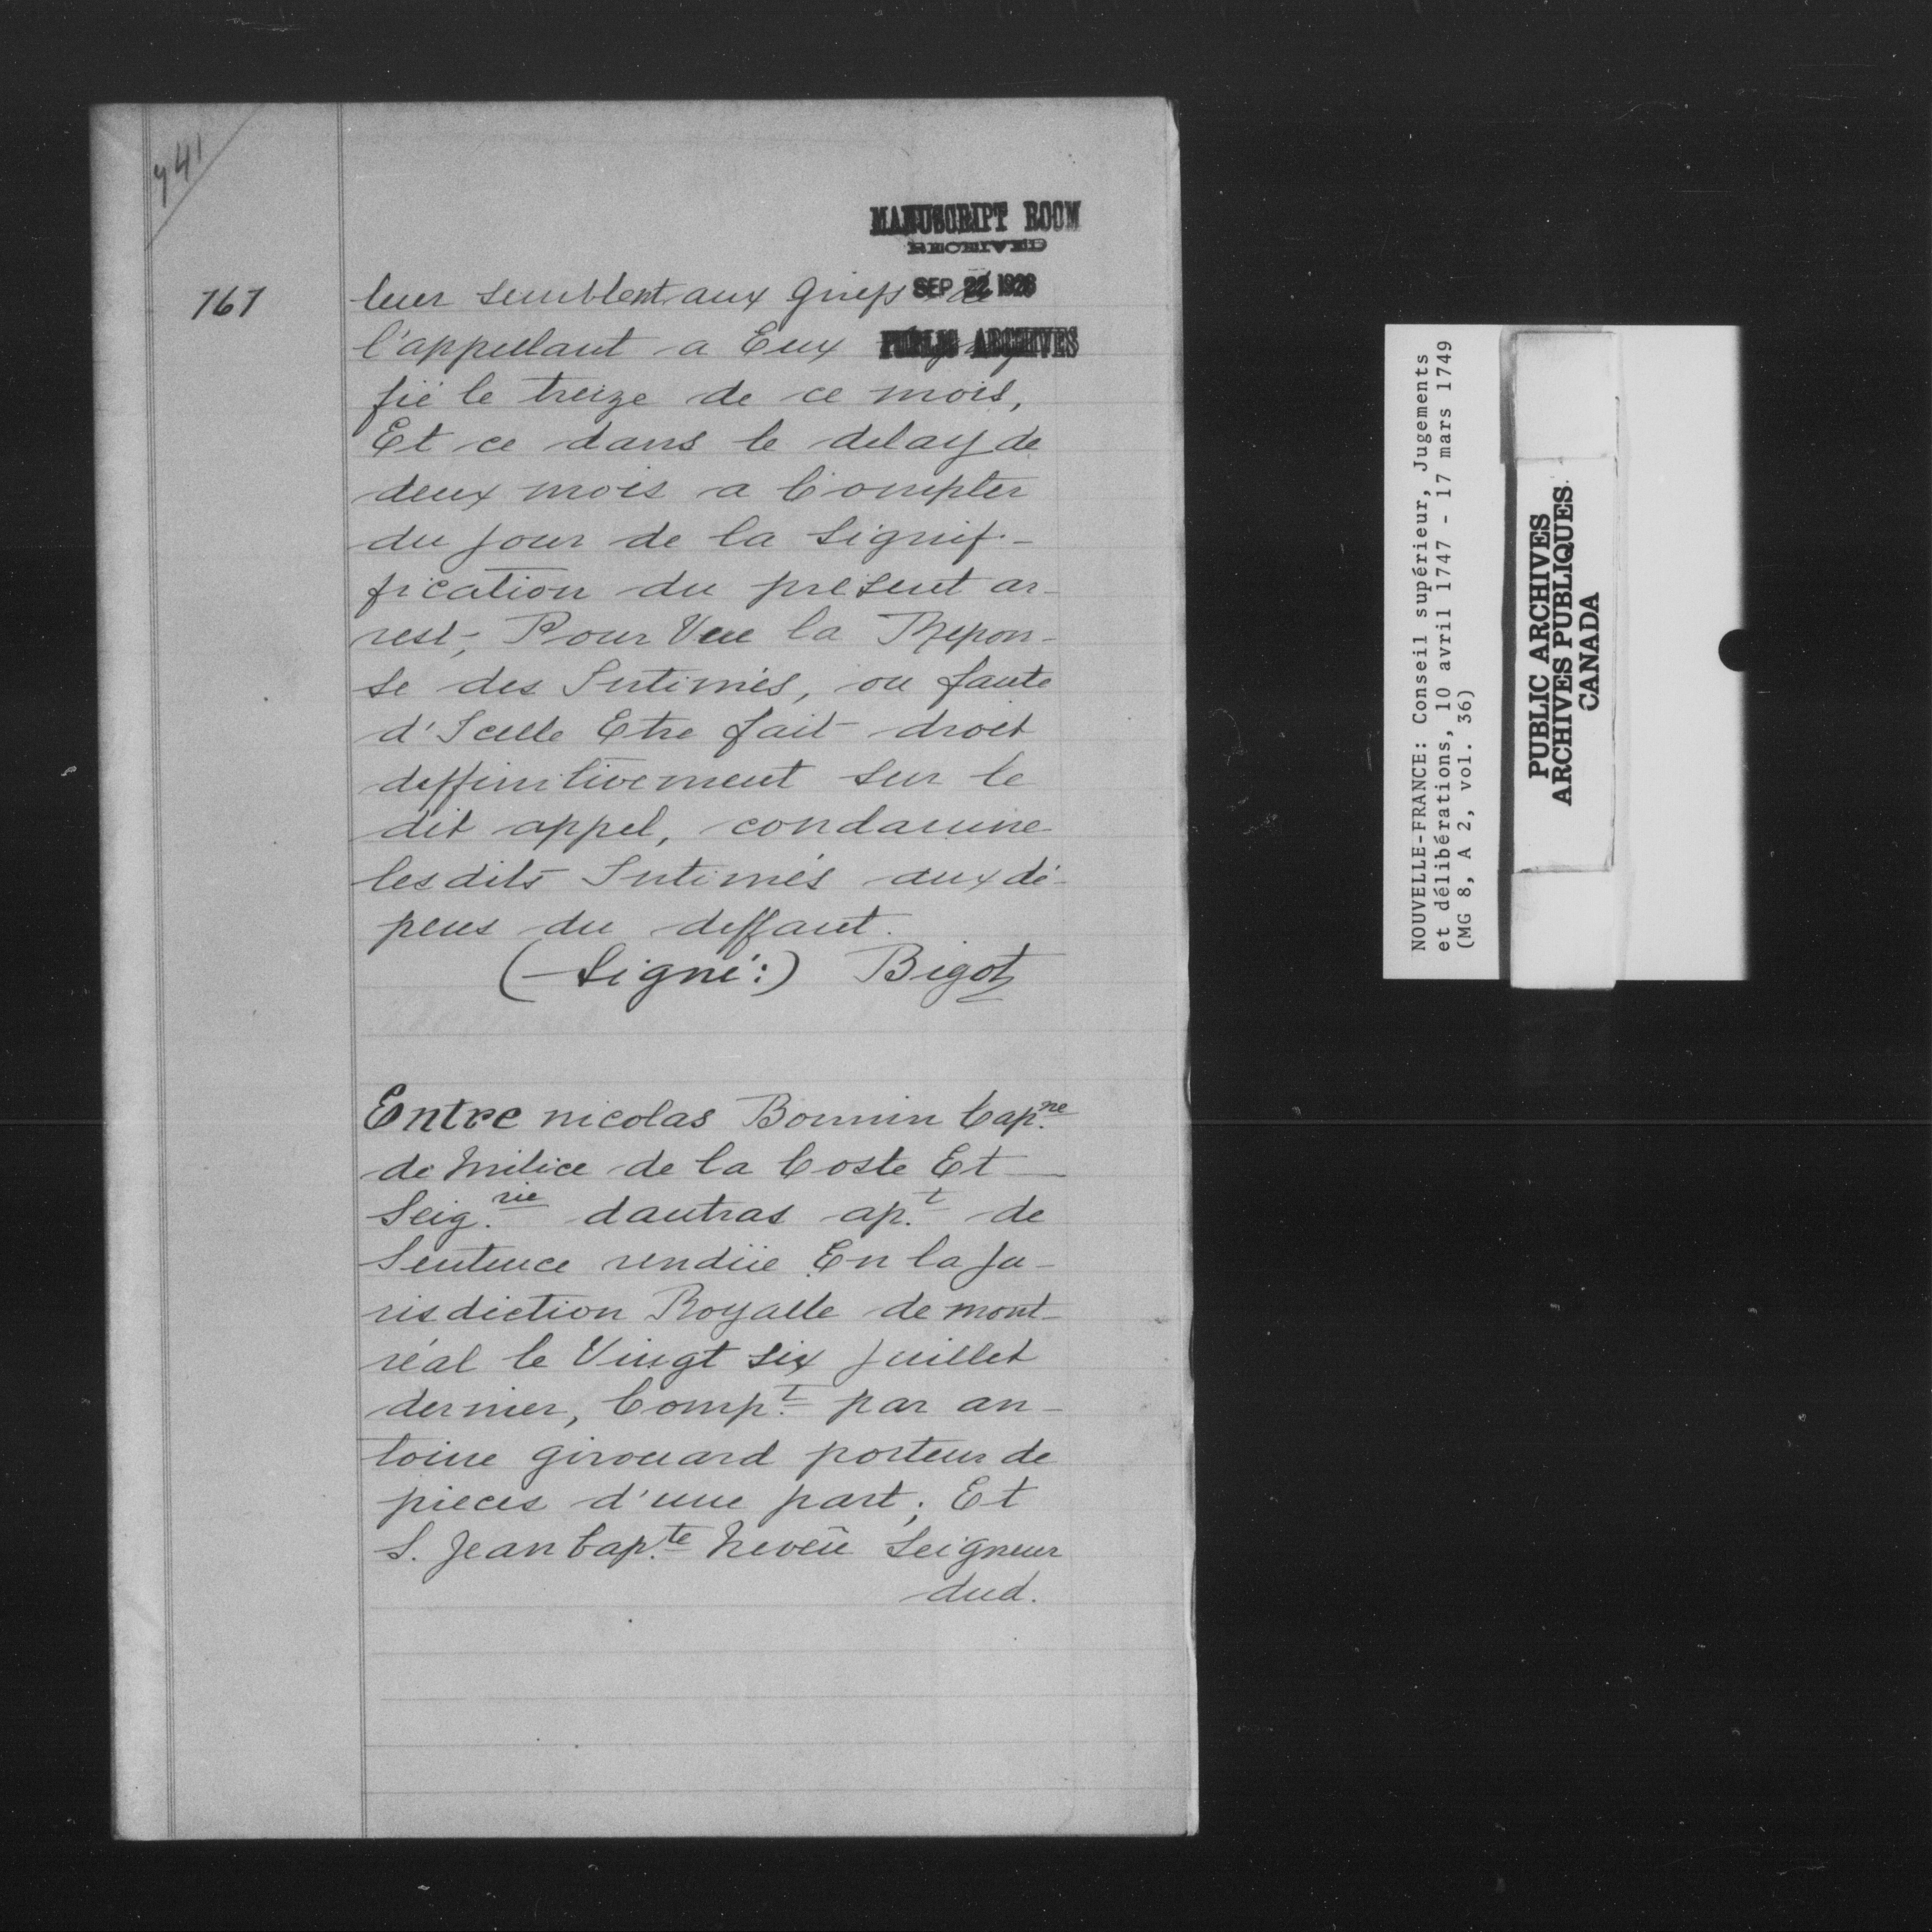 741
MANUSCRIPT ROOM
RECEIVED
SEP 22 1926
PUBLIC ARCHIVES
161
leur semblent aux Griefs de
l'appellant a Eux
fié le treize de ce mois,
Et ce dans le delay de
deux mois a Compter
du jour de la Signif-
fication du present ar-
rest, Pour Veu la Repon-
se des Intimés, ou faute
d'Icelle Etre fait droit
deffinitivement sur le
dit appel, condamne
lesdits Intimés aux dé-
pens du deffaut.
(Signé:) Bigot
Entre nicolas Bonnin Capne
de Milice de la Coste Et
Seig.rie dautras ap.t de
Sentence rendüe En la Ju-
risdiction Royalle de mont-
réal le Vingt six juillet
dernier, Comp.t par an-
toine girouard porteur de
pieces d'une part; Et
S. Jean bap.te Neveü Seigneur
dud.
NOUVELLE-FRANCE: Conseil supérieur, Jugements
et délibérations, 10 avril 1747 - 17 mars 1749
(MG 8, A 2, vol. 36)
PUBLIC ARCHIVES
ARCHIVES PUBLIQUES
CANADA